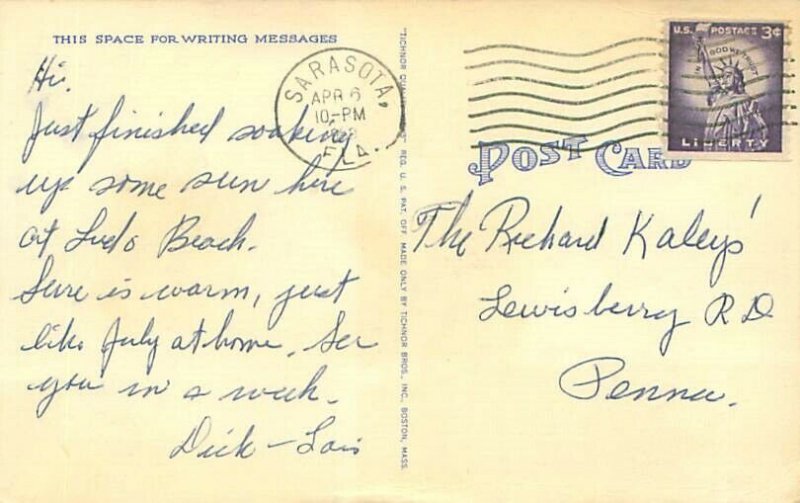 THIS SPACE FOR WRITING MESSAGES
Hi,
Just finished soaking
up some sun here
at Lido Beach.
Sure is warm, just
like July at home. See
you in a week.
Dick - Lois
SARASOTA,
APR 6
10-PM
FLA.
"TICHNOR QUALITY REG. U. S. PAT. OFF. MADE ONLY BY TICHNOR BROS., INC., BOSTON, MASS.
U.S. POSTAGE 3¢
IN GOD WE TRUST
LIBERTY
POST CARD
The Richard Kaleys'
Lewisberry R D
Penna.